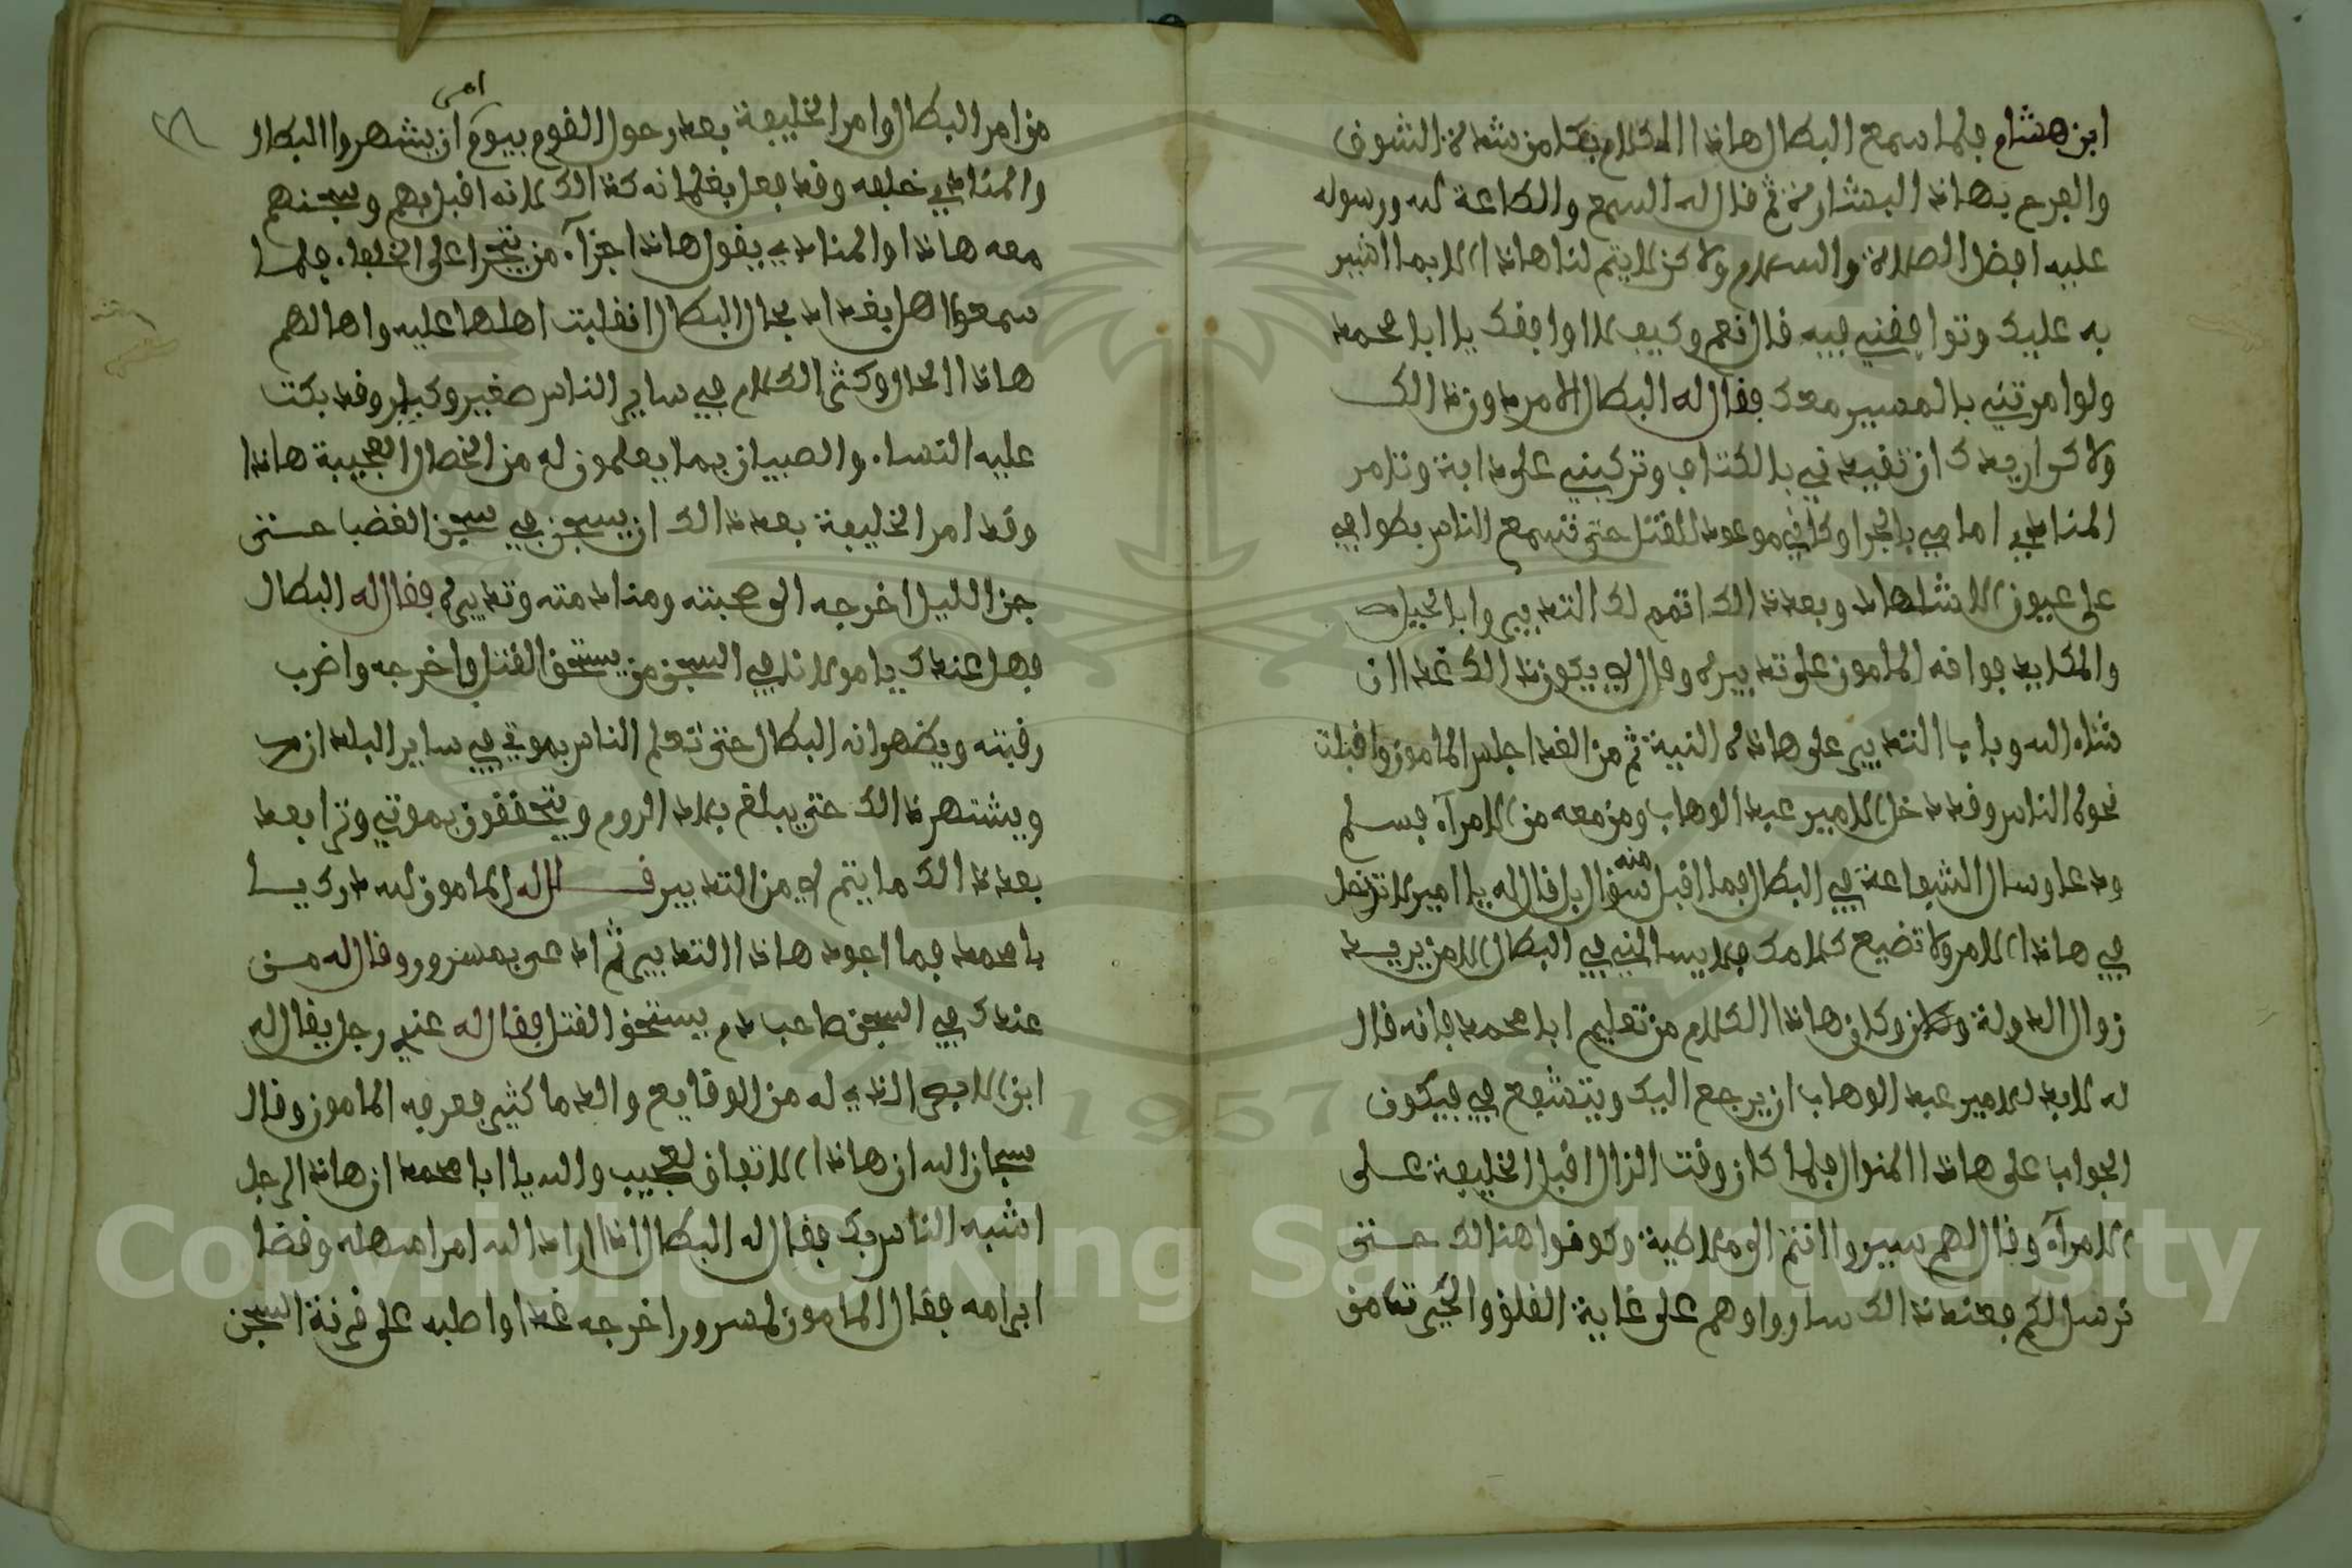 ابن هشام فلما سمع البطال هاذا الكلام بكا من شدة الشوق
والفرح بهاذه البشارة ثم قال له السمع والطاعة لله ورسوله
عليه افضل الصلاة والسلام ولاكن لا يتم لنا هاذا الا بما اشير
به عليك وتوافقني فيه قال نعم وكيف لا اوافقك يا ابا محمد
ولو امرتني بالمسير معك فقال له البطال الامر دون ذالك
ولاكن اريدك ان تقيدني بالكتاف وتركبني على دابة وتامر
المنادي امامي بالجرا وكاني موعود للقتل حتى تسمع الناس بطوافي
على عيون الاشهاد وبعد ذالك اتمم لك التدبير وابا الحيل
والمكايد فوافقه المامون على تدبيره وقال له يكون ذالك غدا ان
شاء الله وباتا التدبير على هاذه النية ثم من الغد اجلس المامون واقبلت
نحوه الناس وقد دخل الامير عبد الوهاب ومن معه من الامرآء فسلم
ودعا وسال الشفاعة في البطال فما اقبل منه سؤال بل قال له يا امير لا تدخل
في هاذا الامر ولا تضيع كلامك فلا يسالني في البطال الا من يريد
زوال الدولة وكان هاذا الكلام من تعليم ابا محمد فانه قال
له لابد للامير عبد الوهاب ان يرجع اليك ويتشفع في فيكون
الجواب على هاذا المنوال فلما كان وقت الزال اقبل الخليفة على
الامرآء وقال لهم سيروا انتم الى ملاطية وكونوا هنالك حتى
نرسل لكم فعند ذالك ساروا وهم على غاية القلق والحيرة
من امر البطال وامر الخليفة بعد رحول القوم بيوم امر ان يشهروا البطال
والمنادي خلفه وقد فعل بغلمانه كذالك لانه اقبل بهم وسجنهم
معه هاذا والمنادي يقول هاذا جزآء من يتجرا على الخلفاء فلما
سمعوا اهل بغداد بحال البطال انقلبت اهلها عليه واهالهم
هاذا الحال وكثر الكلام في ساير الناس صغير وكبير وقد بكت
عليه النساء والصبيان بما يعلمون له من الخصال العجيبة هاذا
وقد امر الخليفة بعد ذالك ان يسجن في سجن الغضب حتى
جن الليل اخرجه الى صحبته ومنادمته وتدبيره فقال له البطال
فهل عندك يا مولانا في السجن من يستحق القتل واخرجه واضرب
رقبته ويظهر انه البطال حتى تعلم الناس بموتي في ساير البلدان
ويشتهر ذالك حتى يبلغ بلاد الروم ويتحققون بموتي وترا بعد
بعد ذالك ما يتم لي من التدبير فقال له المامون لله درك يا
با محمد فما اجود هاذا التدبير ثم ادعى بمسرور وقال له من
عندك في السجن صاحب دم يستحق القتل فقال له عندي رجل يقال له
ابن الذي له من الوقايع والدما كثير فعرفه المامون وقال
سبحان الله ان هاذا الاتفاق لعجيب والله يا ابا محمد ان هاذا الرجل
اشبه الناس بك فقال له البطال اذا اراد الله امرا سهله وقضا
ابرامه فقال المامون لمسرور اخرجه غدا واصلبه على السجن